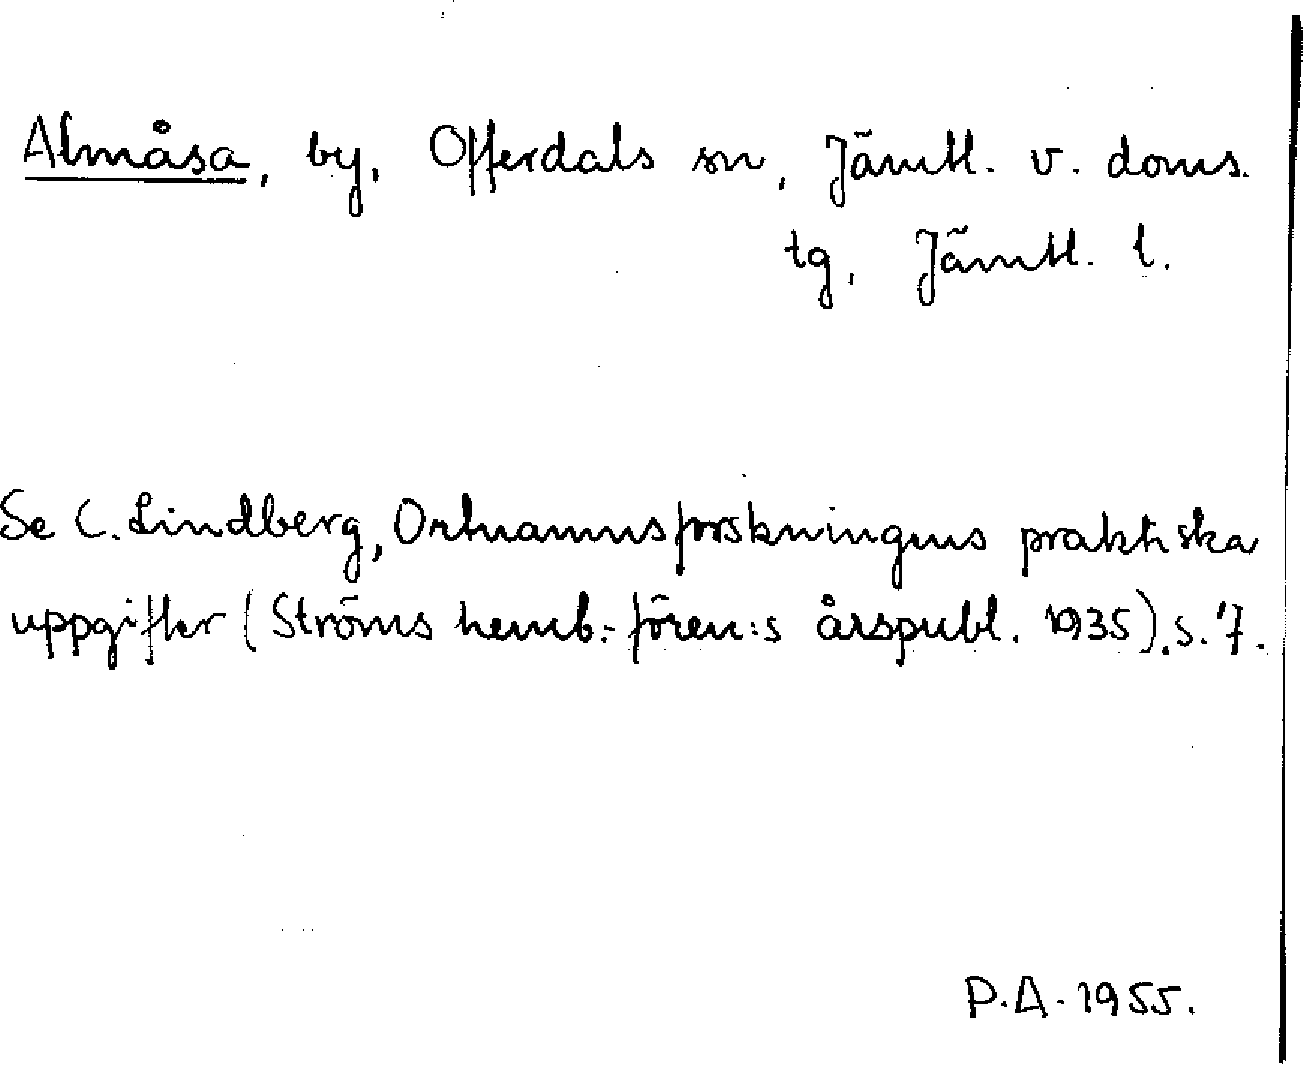 Almåsa, by, Offerdals sn, Jämtl. v. doms.
tg, Jämtl. l.
Se C. Lindberg, Ortnamnsforskningens praktiska
uppgifter (Ströms hemb.-fören:s årspubl. 1935). s. 7.
P.A. 1955.